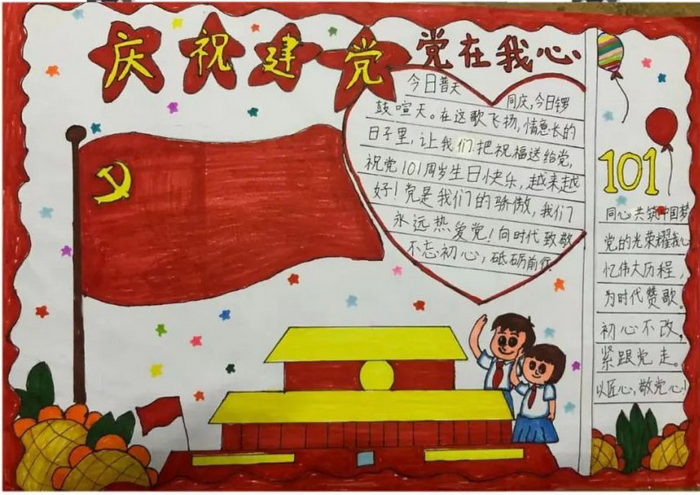 庆祝建党
党在我心
今日普天
同庆,今日锣
鼓喧天。在这歌飞扬,情意长的
日子里,让我们把祝福送给党,
祝党101周岁生日快乐,越来越
好!党是我们的骄傲,我们
永远热爱党!向时代致敬
不忘初心,砥砺前行.
101
同心共筑中国梦
党的光荣耀我心
忆伟大历程,
为时代赞歌.
初心不改,
紧跟党走。
以匠心,敬党心!